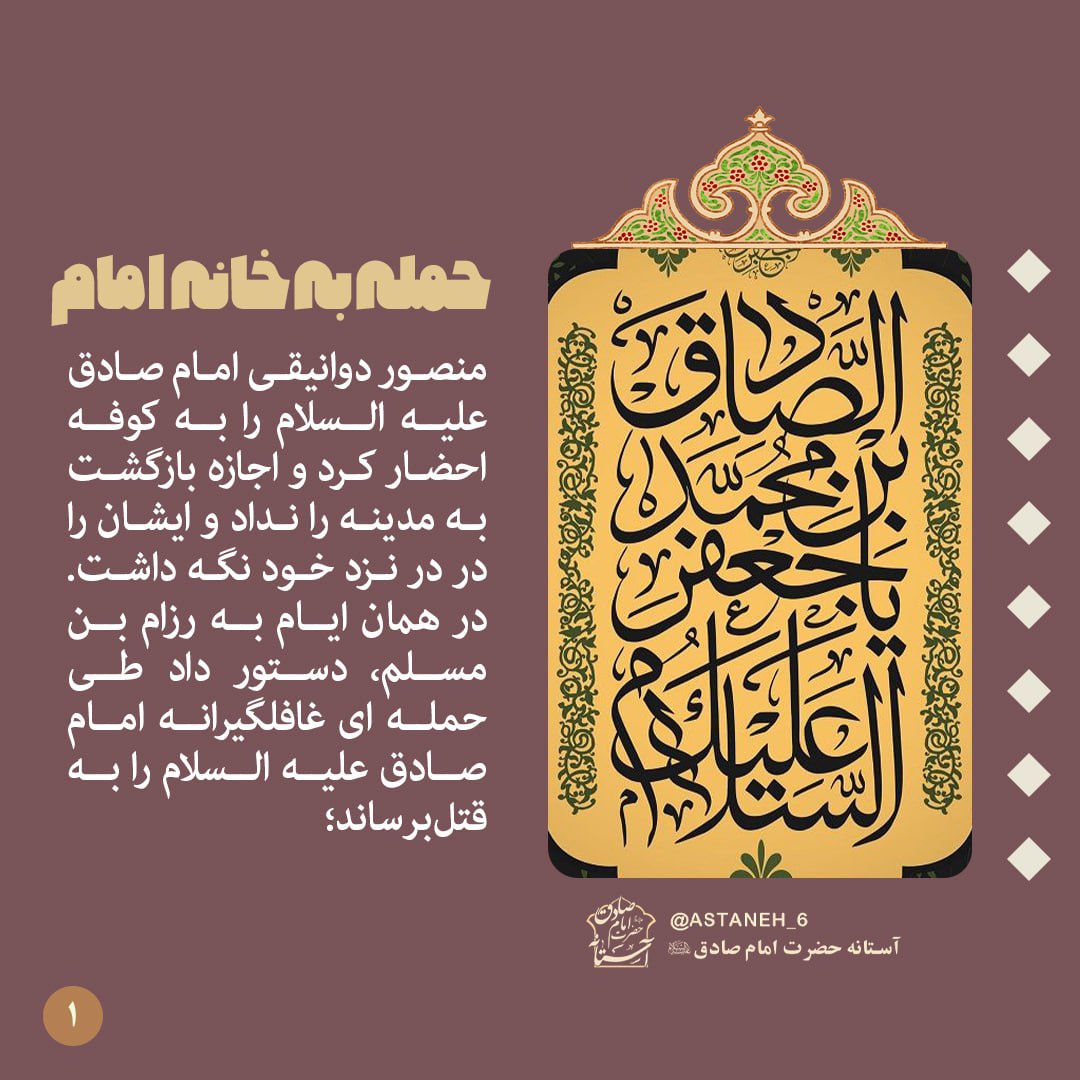 حمله به خانه امام
منصور دوانیقی امام صادق
علیه السلام را به کوفه
احضار کرد و اجازه بازگشت
به مدینه را نداد و ایشان را
در در نزد خود نگه داشت.
در همان ایام به رزام بن
مسلم، دستور داد طی
حمله ای غافلگیرانه امام
صادق علیه السلام را به
قتل‌برساند؛
السلام علیک
یا جعفر
بن محمد
الصادق
@ASTANEH_6
آستانه حضرت امام صادق
آستانه حضرت امام صادق
۱